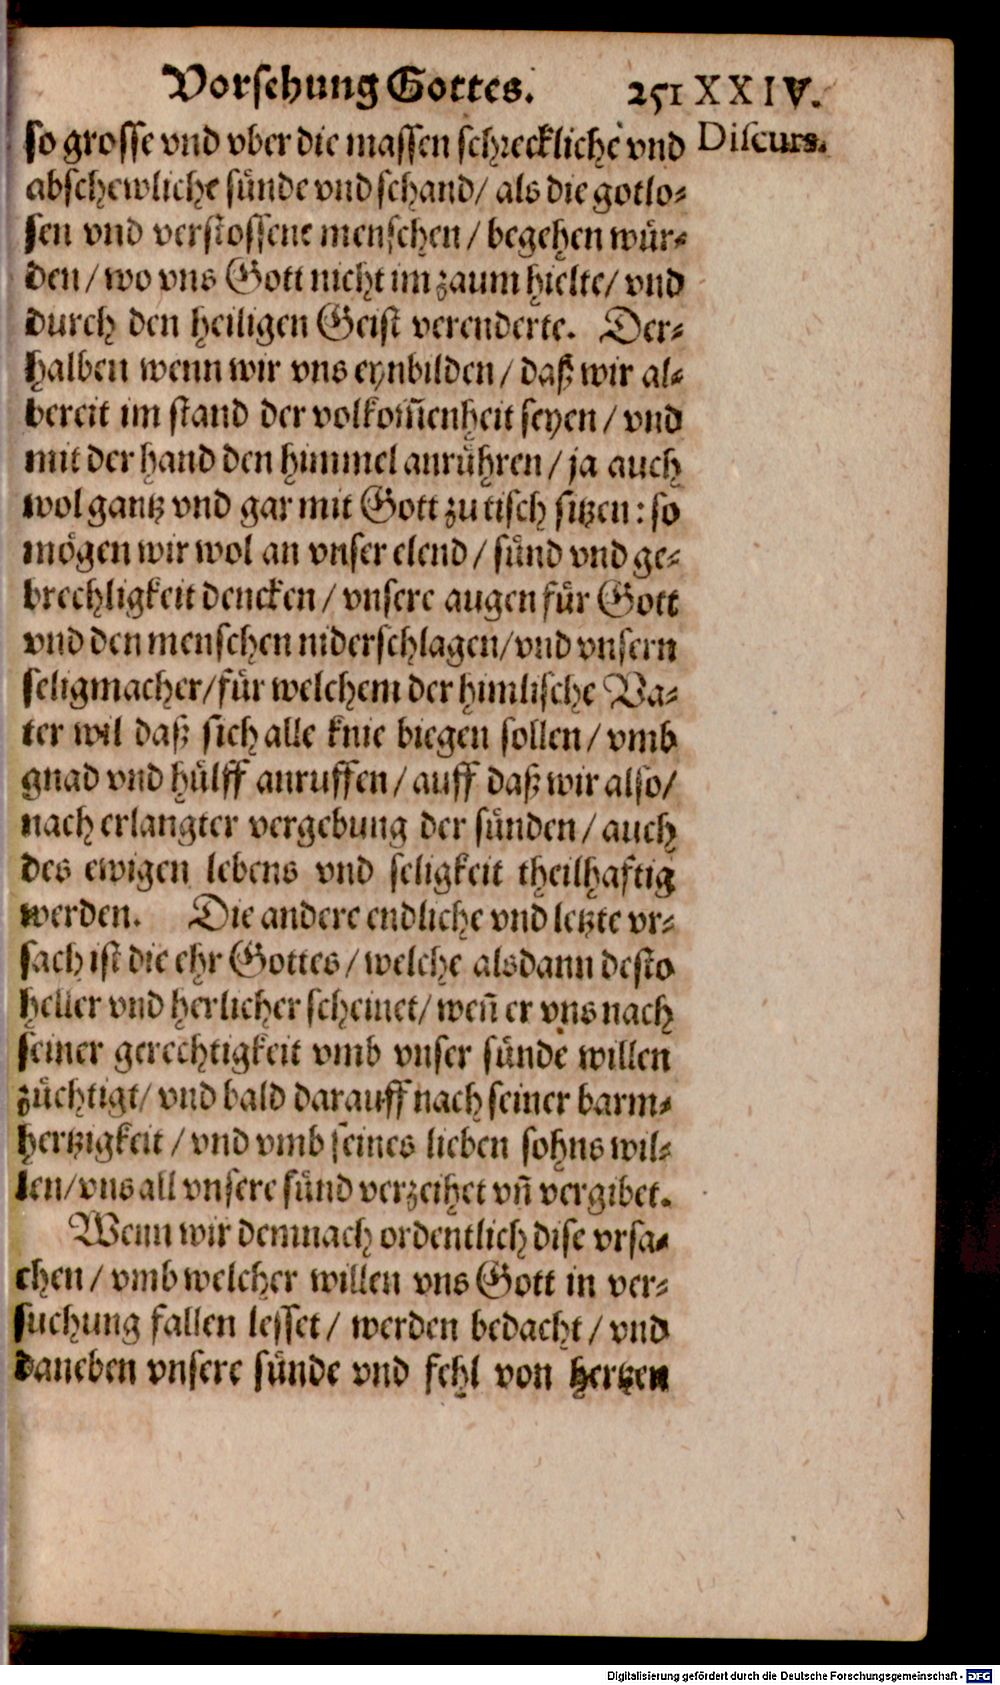 Vorsehung Gottes. 251 XXIV.
so grosse vnd vber die massen schreckliche vnd Discurs.
abschewliche sünde vnd schand/ als die gotlo-
sen vnd verstossene menschen / begehen wür-
den / wo vns Gott nicht im zaum hielte/ vnd
durch den heiligen Geist verenderte. Der-
halben wenn wir vns eynbilden / daß wir al-
bereit im stand der volkom̃enheit seyen / vnd
mit der hand den himmel anrühren / ja auch
wol gantz vnd gar mit Gott zu tisch sitzen: so
mögen wir wol an vnser elend / sünd vnd ge-
brechligkeit dencken / vnsere augen für Gott
vnd den menschen niderschlagen/vnd vnsern
seligmacher/für welchem der himlische Va-
ter wil daß sich alle knie biegen sollen / vmb
gnad vnd hülff anruffen / auff daß wir also/
nach erlangter vergebung der sünden / auch
des ewigen lebens vnd seligkeit theilhaftig
werden. Die andere endliche vnd letzte vr-
sach ist die ehr Gottes / welche alsdann desto
heller vnd herlicher scheinet/ weñ er vns nach
seiner gerechtigkeit vmb vnser sünde willen
züchtigt/ vnd bald darauff nach seiner barm-
hertzigkeit / vnd vmb seines lieben sohns wil-
len/vns all vnsere sünd verzeihet vñ vergibet.
Wenn wir demnach ordentlich dise vrsa-
chen / vmb welcher willen vns Gott in ver-
suchung fallen lesset / werden bedacht / vnd
daneben vnsere sünde vnd fehl von hertzen
Digitalisierung gefördert durch die Deutsche Forschungsgemeinschaft - DFG